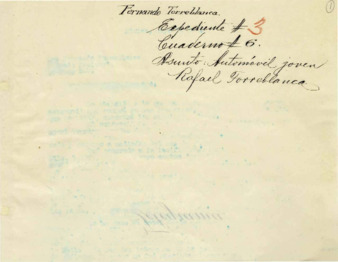 1
Fernando Torreblanca.
Expediente # 3
Cuaderno # 6.
Asunto: Automóvil joven
Rafael Torreblanca